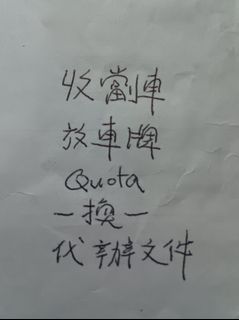 收劏車
放車牌
Quota
一換一
代辦文件